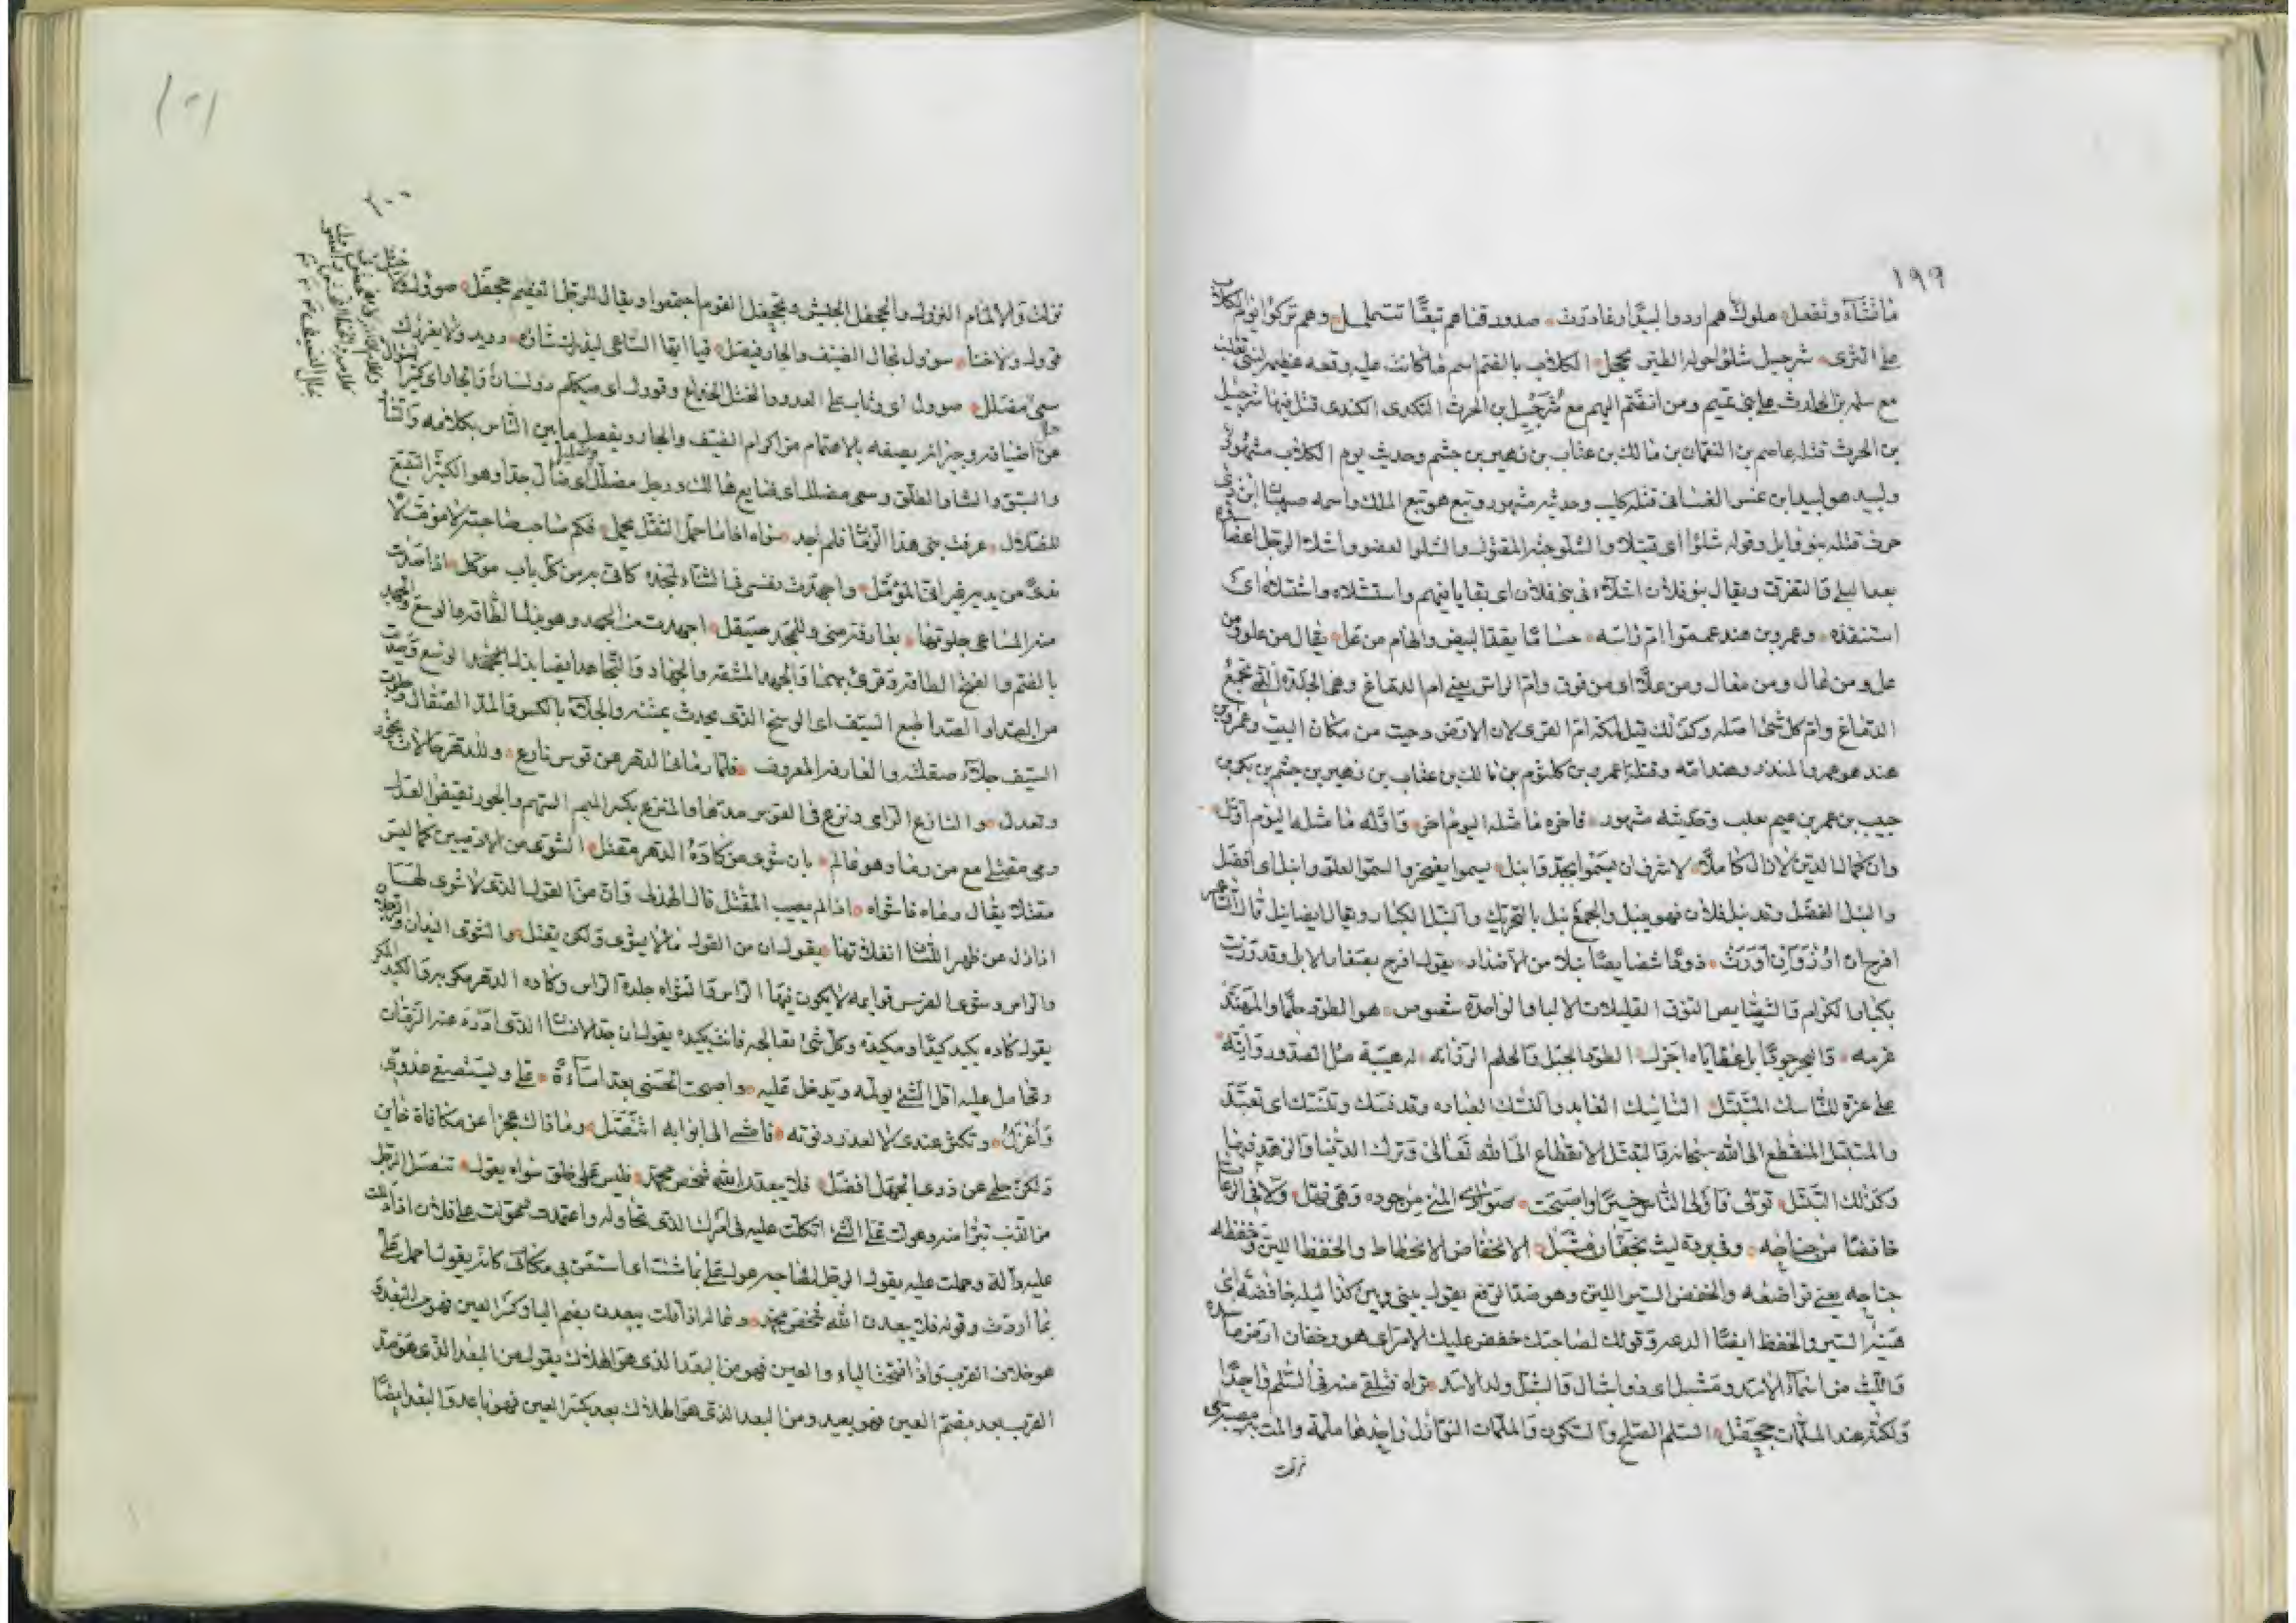 ١٩٩
ما تشآء وتفعل ملوك هم اردوا لبيدا وغادرت صدور قناهم تبعًا تتململ وهم تركوا يوم الكلاب
على الثرى شرحبيل شلوًا حوله الطير الكلاب بالضم اسم ماء كانت عليه وقعه عظيم لبني تغلب
مع سلمه بن الحارث على بني تميم ومن انضم اليهم مع شرحبيل بن الحرث الكندى قتل فيها شرحبيل
بن الحرث قتله عاصم بن النعمان بن مالك بن عتاب بن زهير بن جشم وحديث يوم الكلاب مشهور
ولبيد هو لبيد ابن عنبس الغسانى قتله كليب وحديثه مشهور وتبع هو تبع الملك واسمه صهبان ابن ذى
حرث قتله بنو وايل وقوله شلوًا اى قتيلا والشلو جثه المقتول والشلو العضو واشلاء الرجل اعضاه
بعد البلى والتفرق ويقال بنو فلان اشلاء فى بنى فلان اى بقايا فيهم واستشلاه واشتلاه اى
استنقذه وعمرو بن هند عمموا ام راسه حسامًا يقد البيض والهام من عل يقال من علو ومن
عل ومن عال ومن معال ومن علا اى من فوق وام الراس يعنى ام الدماغ وهى الجلدة التى تجمع
الدماغ وام كل شئ اصله وكذلك قيل لمكه ام القرى لان الارض دحيت من مكان البيت وعمرو بن
هند هو عمرو المنذر وهند امه وقتله عمرو بن كلثوم بن مالك بن عتاب بن زهير بن جشم بن بكر بن
حبيب بن عمر بن غنم تغلب وحديثه مشهور فاخره ما مثله اليوم اخر واوله ما مثله اليوم اول
وان كمال الدين لازال كاملا لاشرف ان يسموا بمجد وانبل يسموا يفتخر والسمو العلو وانبل اى افضل
والنبل الفضل وقد نبل فلان فهو نبيل والجمع نبل بالتحريك والنبل الكبار ويقال ايضا نبل قال الشاعر
افرح ان ارزؤ وان اورث ذودًا شصايصًا نبلا من الاضداد يقول افرح بصغار الابل وقد رزيت
بكبار الكرام والشصايص النوق القليلات الالبان الواحدة شصوص هو الطود حلمًا والمهند
عزمه والبحر جودًا بل عطاياه اجزل الطود الجبل والحلم الرزانه له هيبة ملء الصدور وانه
على عزه للناسك المتبتل الناسك العابد والنسك العباده وقد نسك وتنسك اى تعبد
والمتبتل المنقطع الى الله سبحانه والتبتل الانقطاع الى الله تعالى وترك الدنيا والزهد فيها
وكذلك التبتل تولى فاولى الناس خيرًا واصبحت صوادى المنى من جوده وهى نهل ولاقى الرعايا
خافضًا من جناحه وفى برده ليث بخفان مشبل الانخفاض الانحطاط والخفظ اللين وخفظه
جناحه يعنى تواضعه والخفض السير اللين وهو ضد الرفع يقول بينى وبين كذا ليله خافضه اى
هينة السير والخفظ ايضًا الدعه وقولك لصاحبك خفض عليك الامر اى هون وخفان ارض ماسده
والليث من اسماء الاسد ومشبل اى ذو اشبال والشبل ولد الاسد تراه فتلقى منه فى السلم واحدًا
ولكنه عند الملمات جحفل السلم الصلح والسكون والملمات النوازل واحدها ملمة والمت به مصيبة اى
نزلت
٢٠٠
نزلت والالمام النزول والجحفل الجيش وتجحفل القوم اجتمعوا ويقال للرجل العظيم جحفل صوول
قوول ولا خنا سوول نجال الضيف والجار فيصل فيا ايها الساعى ليدرك شاؤه رويد ولا يغررك
سعى مضلل صوول اى وثاب على العدو والختل الخداع وقوول اى متكلم
عن اضيافه وجيرانه يصفه بالاهتمام من اكرام الضيف والجار ويفصل ما بين الناس بكلامه والشاو
والسبق والشاو الطلق وسعى مضلل اى ضايع هالك ورجل مضلل اى ضال جدا وهو الكثير التتبع
للضلال عرفت بنى هذا الزمان فلم اجد سواه اذا ما حمل الثقل يحمل فكم صاحب صاحبته لا مؤملا
نداى من يديه المؤمل واجهدت نفسى فى الثناء لمجده كانى به من كل باب موكل اذا صديت
منه المساعى جلوتها بعارفة منى وللمجد صيقل اجهدت من الجهد وهو بذل الطاقه والوسع والجهد
بالضم والفتح الطاقه وقرئ بهما والجهد المشقه والجهاد والتجاهد ايضا بذل المجهود الوسع وصديت
من الصدا والصدا طبع السيف اى الوسخ الذى يحدث بمتنه والجلاء بالكسر والمد الصقال وجلوت
السيف جلاء صقلته والعارفه المعروف فلما رمانى الدهر عن قوس نازع وللدهر حالان يجور
وتعدل والنازع الرامى ونزع فى القوس مدها والمنزع بكسر الميم السهم والجور نقيض العدل
رمى مقتلى مع من رما وهو عالم بان شوى من كاده الدهر مقتل الشوى من الادميين كما ليس
مقتلا يقال رماه فاشواه اذا لم يصيب المقتل قال الهذلى وان من القول الذى لا شوى لها
اذا زل عن ظهر اللسان انفلاتها يقول ان من القول ما لا يشوى ولكن يقتل والشوى اليدان والرجلان
والراس وشوى الفرس قوايمه لا يكون فيها الراس والشواه جلدة الراس وكاده الدهر مكر به والكيد المكر
يقول كاده يكيده كيدًا ومكيدة وكل شئ تعالجه فانت تكيده يقول ان حد الانسان الذى
وتحامل عليه اقل الشئ يولمه ويدخل عليه واصبحت الحسنى بعد اساءة على وليستصفى عدوى
واعزل وتكثر عندى لا لعذر دنوته فاضحى الى ابوابه اتنصل وما ذاك عجزا عن مكافاة خاين
ولكن حلمى عن ذوى الجهل افضل فلا يبعدن الله شخص محمد فليس على خلق سواه يعول تنصل الرجل
من الذنب تبرا منه وعولت على الشئ اتكلت عليه فى امرك الذى تحاوله واعتمدت عولت على فلان اذا دللت
عليه دالة وحملت عليه يقول الرجل لصاحبه عول على بما شئت اى استعن بى مكانى كانه يقول احمل على
بما اردت وقوله فلا يبعدن الله شخص محمد وقال اذا قلت يبعدن بضم اليا وكسر العين فهو من البعد
هو خلاف القرب واذا فتحت الياء والعين فهو من البعد الذى هو الهلاك يقول من البعد الذى هو ضد
القرب بعد بضم العين فهو بعيد ومن البعد الذى هو الهلاك بعد بكسر العين فهو باعد والبعد ايضًا